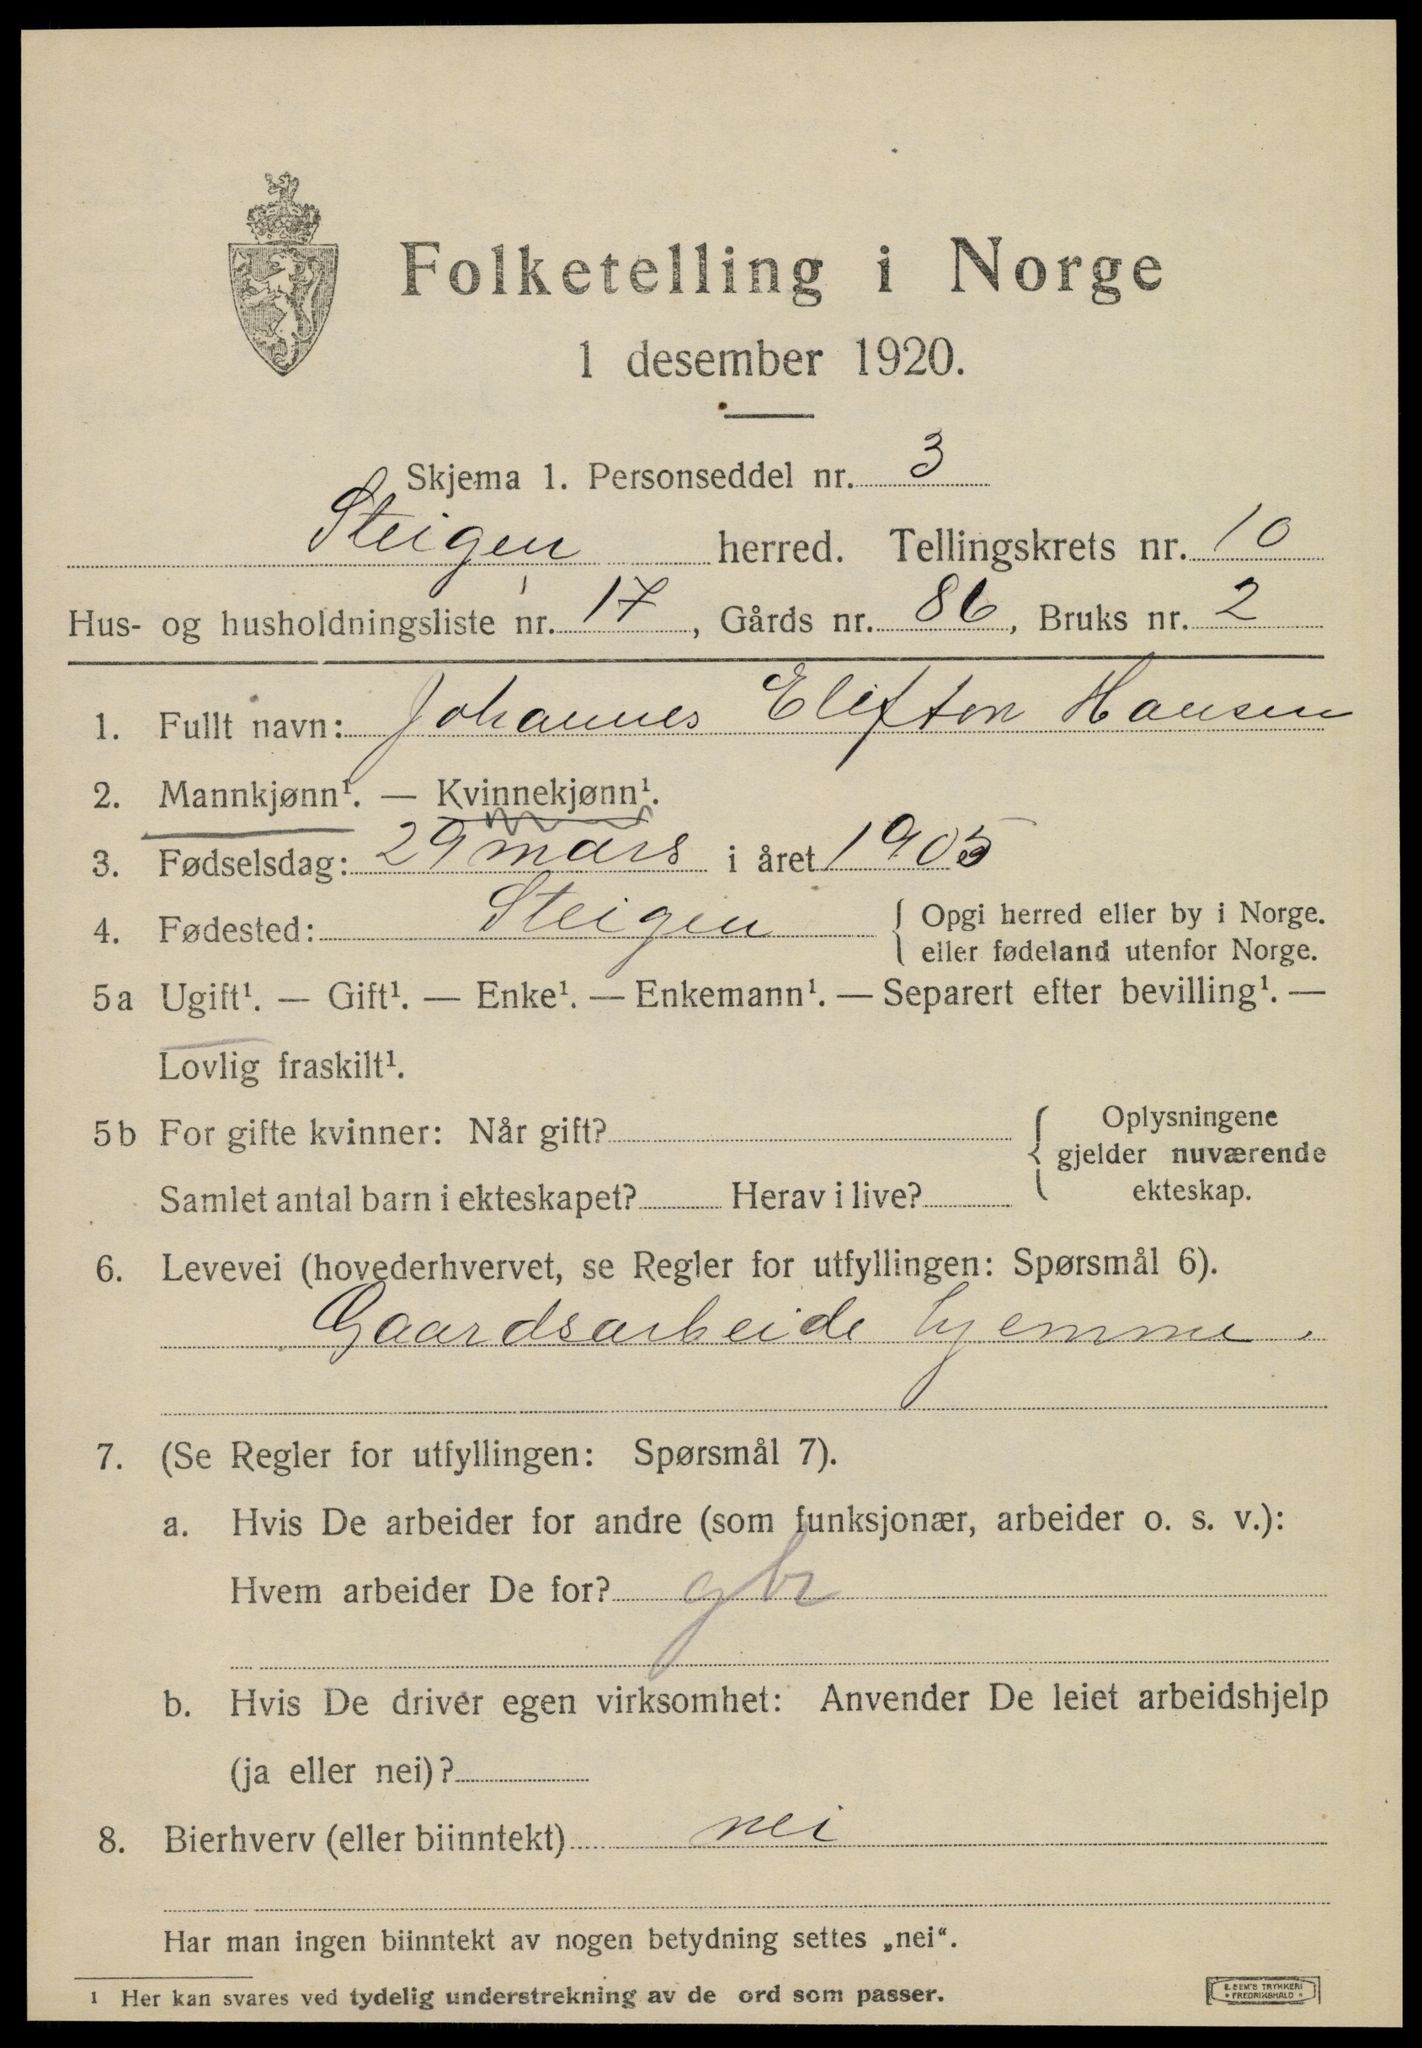 Folketelling i Norge
1 desember 1920.
Skjema 1. Personseddel nr. 3
Steigen herred. Tellingskrets nr. 10
Hus- og husholdningsliste nr. 17, Gårds nr. 86, Bruks nr. 2
1. Fullt navn: Johannes Elefton Hansen
2. Mannkjønn¹. — Kvinnekjønn¹.
3. Fødselsdag: 29 mars i året 1905
4. Fødested: Steigen { Opgi herred eller by i Norge.
eller fødeland utenfor Norge.
5a Ugift¹. — Gift¹. — Enke¹. — Enkemann¹. — Separert efter bevilling¹. —
Lovlig fraskilt¹.
5b For gifte kvinner: Når gift?
Samlet antal barn i ekteskapet? Herav i live?
Oplysningene
gjelder nuværende
ekteskap.
6. Levevei (hovederhvervet, se Regler for utfyllingen: Spørsmål 6).
Gaardsarbeide hjemme.
7. (Se Regler for utfyllingen: Spørsmål 7).
a. Hvis De arbeider for andre (som funksjonær, arbeider o. s. v.):
Hvem arbeider De for? gbr
b. Hvis De driver egen virksomhet: Anvender De leiet arbeidshjelp
(ja eller nei)?
8. Bierhverv (eller biinntekt) nei
Har man ingen biinntekt av nogen betydning settes „nei“.
1 Her kan svares ved tydelig understrekning av de ord som passer.
E. SEM'S TRYKKERI
• FREDRIKSHALD •